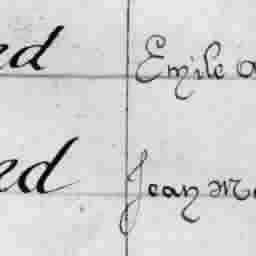 ed Emile
ed Jean